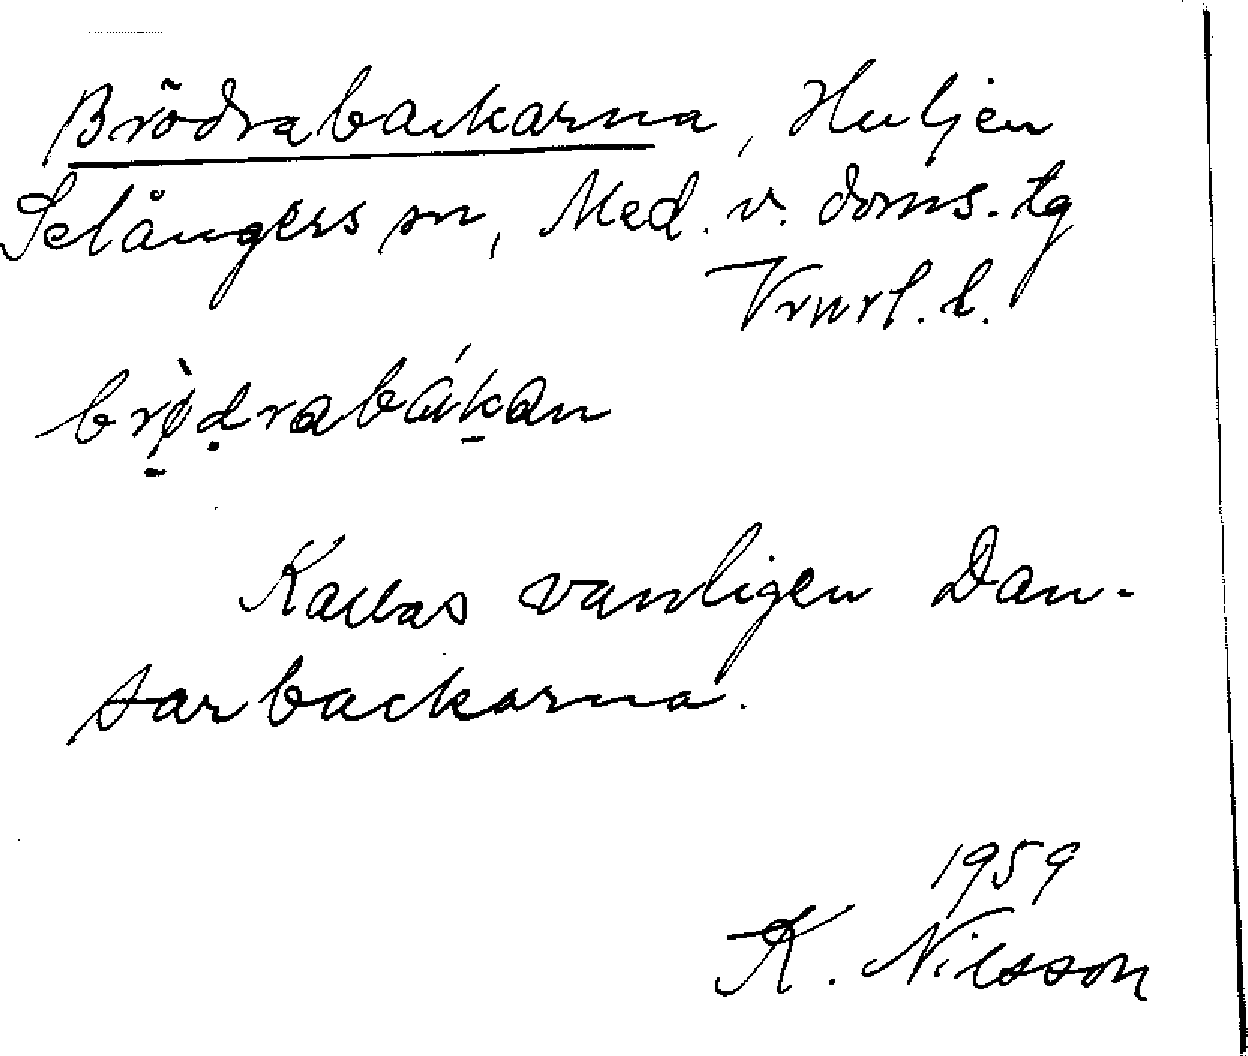 Brödrabackarna, Huljen
Selångers sn, Med. v. doms. tg
Vrnrl. l.
brø̀ḍrabáḵan
Kallas vanligen Dan-
sarbackarna.
1959
K. Nilsson